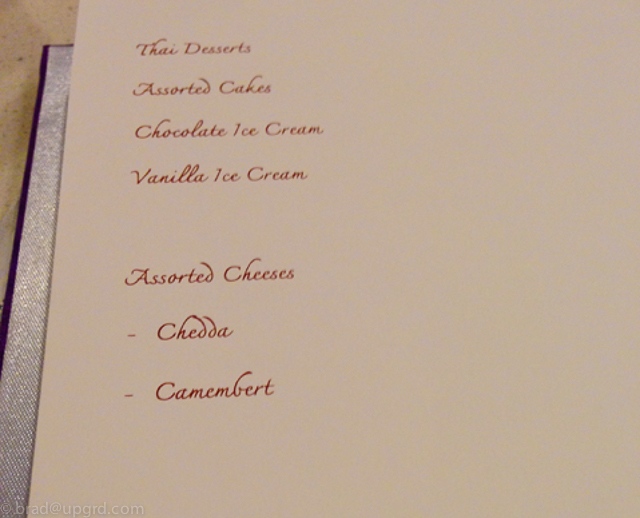 Thai Desserts
Assorted Cakes
Chocolate Ice Cream
Vanilla Ice Cream
Assorted Cheeses
- Chedda
- Camembert
© brad@upgrd.com